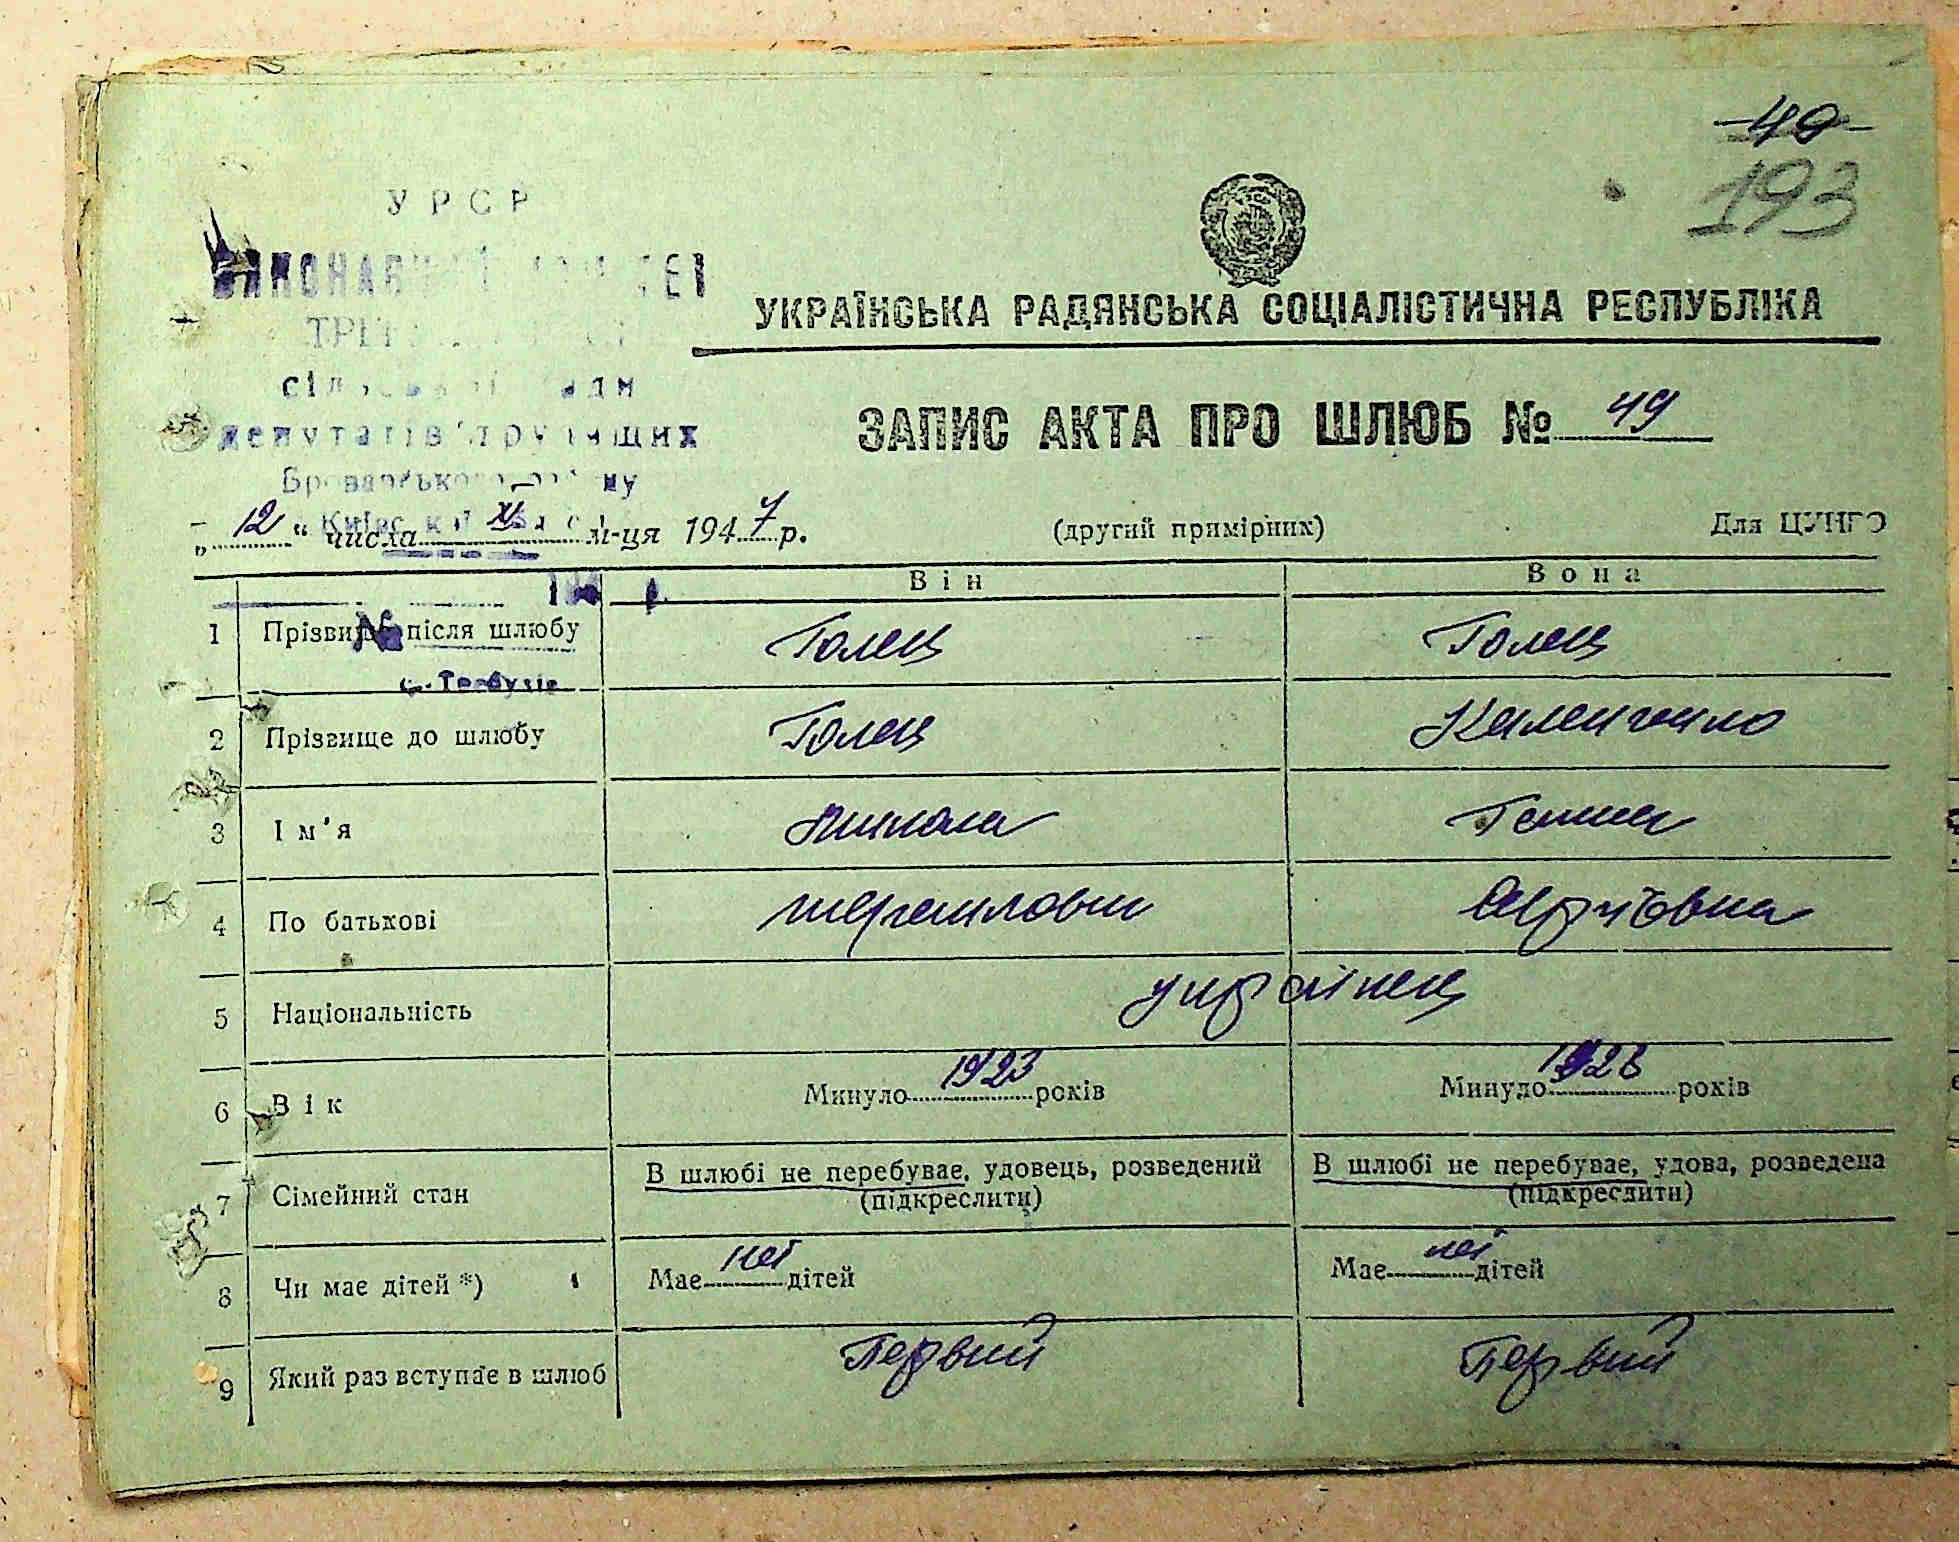 -40-
193
УРСР
сільської ради
депутатів трудящих
Броварського району
УКРАЇНСЬКА РАДЯНСЬКА СОЦІАЛІСТИЧНА РЕСПУБЛІКА
ЗАПИС АКТА ПРО ШЛЮБ № 49
„12“ числа XI м-ця 1947 р. (другий примірник) Для ЦУНГО
Він Вона
1 Прізвище після шлюбу Голец Голец
2 Прізвище до шлюбу Голец
3 Ім'я Микола Галина
4 По батькові Сергіёвна
5 Національність українец
6 Вік Минуло 1923 років Минуло 1928 років
7 Сімейний стан В шлюбі не перебуває, удовець, розведений (підкреслити) В шлюбі не перебуває, удова, розведена (підкреслити)
8 Чи має дітей *) Має неї дітей Має неї дітей
9 Який раз вступає в шлюб Первий Первий